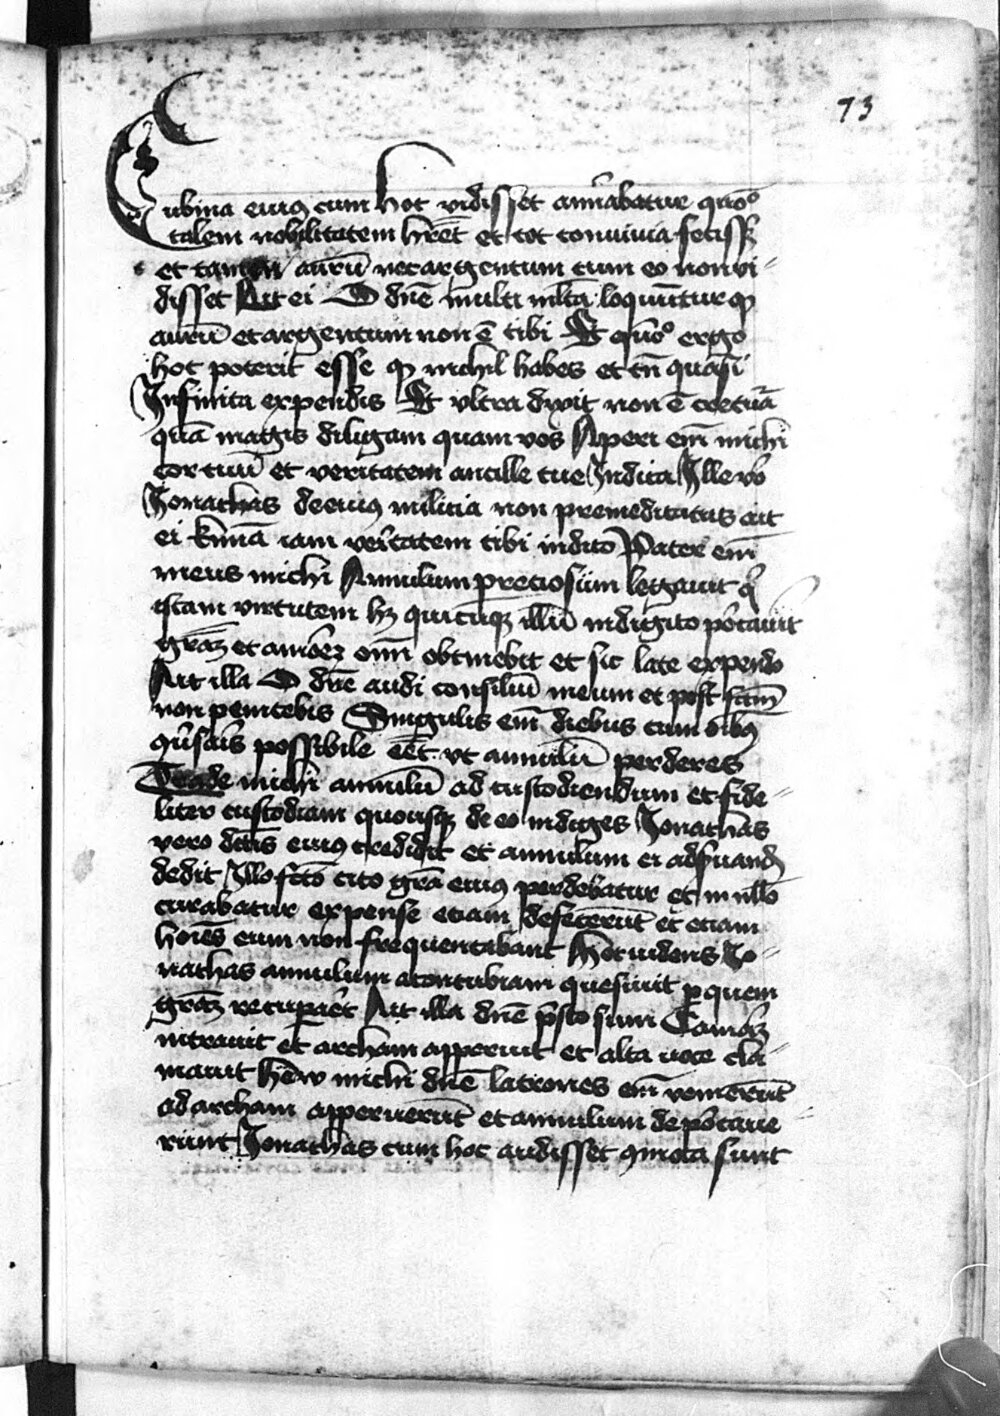 73
Cubina eius cum hoc vidisset am̄rabatur quōo
talem nobilitatem hr̄et et tot convivia feciss3
et tamen aurū nec argentum cum eo non vi-
disset Ait ei O dn̄e multi ml̄ta loquūtur qꝫ
aurū et argentum non ē tibi Et quō ergo
hoc poterit esse qꝫ nichil habes et tn̄ quasi
Infinita expendis Et vltra dixit non ē creatū̄a
quā magis diligam quam vos Aperi em̄ michi
cor tuū et veritatem ancille tue Indica Ille v̄o
Jonathas de eius militia non premeditatus ait
ei k̄mā iam ver̄tatem tibi indico Pater em̄
meus michi Annulum preciosum legavit q̄
istam virtutem hꝫ quicūqꝫ illū in digito p̄tauit
grāꝫ et amōreꝫ oīm obtinebit et sic late expendo
Ait illa O dn̄e audi consiliū meum et post fcm̄
non penitebis Singulis em̄ diebus cum oībꝫ
ꝯūsaris possibile eēt vt annulū perderes
Trade michi annulū ad custodiendum et fide-
liter custodiam quousqꝫ de eo indiges Jonathas
vero dc̄is eius credidit et annulum ei ad s̄uand̄
dedit Illo fc̄o cito grā eius perdebatur et in nullo
curabatur expense etiam defecerūt et etiam
hoīes eum non frequentabant Hoc videns Jo-
nathas annulum a concubina quesivit ꝑ quem
grāꝫ recupaēt Ait illa dn̄e p̄sto sum Camāꝫ
intravit et archam apperuit et alta voce cla-
mavit hew michi dn̄e latrones em̄ venerūt
ad archam apperuerūt et annulum deportaue
runt Jonathas cum hoc audisset ꝯmota sunt